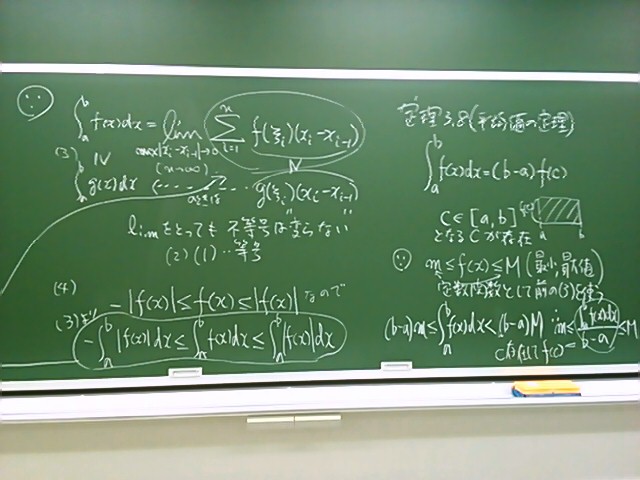 ∫_a^b f(x)dx = lim_{max|x_i-x_{i-1}|→0 (n→∞)} Σ_{i=1}^n f(ξ_i)(x_i-x_{i-1})
(3) ≥ ≥
∫_a^b g(x)dx g(ξ_i)(x_i-x_{i-1})
limをとっても 不等号は"変らない"
(2)(1)‥等号
(4)
-|f(x)| ≤ f(x) ≤ |f(x)| なので
(3)より
-∫_a^b |f(x)|dx ≤ ∫_a^b f(x)dx ≤ ∫_a^b |f(x)|dx
定理3.8(平均値の定理)
∫_a^b f(x)dx = (b-a)f(c)
C∈[a,b]
f(c)
a b
となるCが存在
m ≤ f(x) ≤ M (最小,最大値)
定数関数として前の(3)を使う
(b-a)m ≤ ∫_a^b f(x)dx ≤ (b-a)M ∴ m ≤ ∫_a^b f(x)dx / b-a ≤ M
C存在して f(c)=